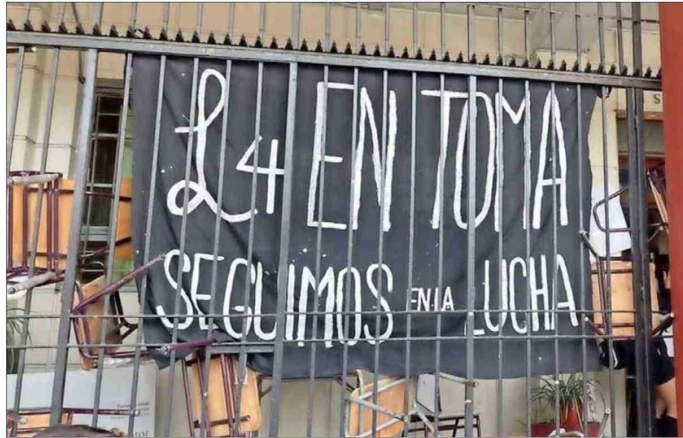 L4 EN TOMA
SEGUIMOS EN LA LUCHA